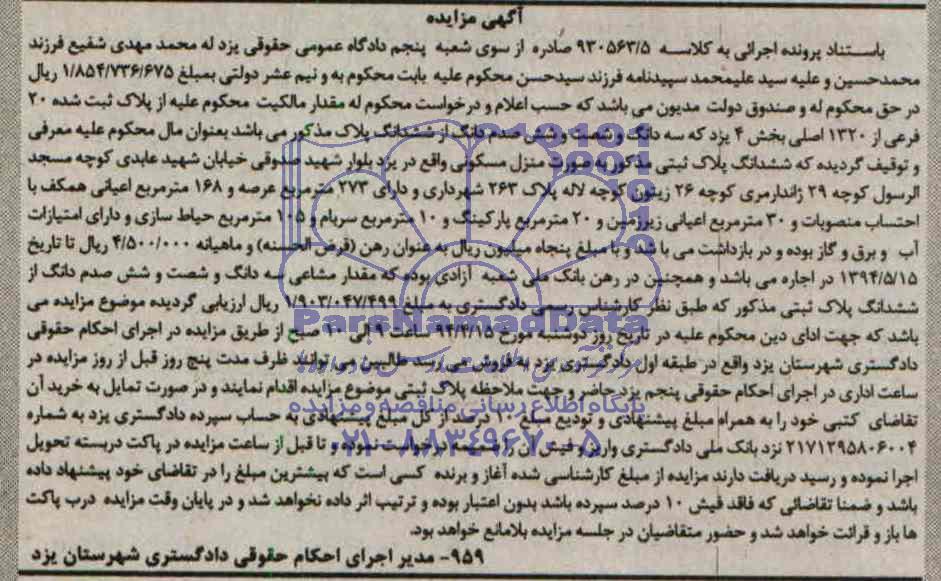 آگهی مزایده
باستناد پرونده اجرائی به کلاسه ۹۳۰۵۶۳/۵ صادره از سوی شعبه پنجم دادگاه عمومی حقوقی یزد له محمد مهدی شفیع فرزند
محمدحسین و علیه سید علیمحمد سپیدنامه فرزند سیدحسن محکوم علیه بابت محکوم به و نیم عشر دولتی بمبلغ ۱/۸۵۴/۷۳۶/۶۷۵ ریال
در حق محکوم له و صندوق دولت مدیون می باشد که حسب اعلام و درخواست محکوم له مقدار مالکیت محکوم علیه از پلاک ثبت شده ۲۰
فرعی از ۱۳۲۰ اصلی بخش ۴ یزد که سه دانگ و شصت و شش صدم دانگ از ششدانگ پلاک مذکور می باشد بعنوان مال محکوم علیه معرفی
و توقیف گردیده که ششدانگ پلاک ثبتی مذکور به صورت منزل مسکونی واقع در یزد بلوار شهید صدوقی خیابان شهید عابدی کوچه مسجد
الرسول کوچه ۲۹ ژاندارمری کوچه ۲۶ زیتون کوچه لاله پلاک ۲۶۳ شهرداری و دارای ۲۷۳ مترمربع عرصه و ۱۶۸ مترمربع اعیانی همکف با
احتساب منصوبات و ۳۰ مترمربع اعیانی زیرزمین و ۲۰ مترمربع پارکینگ و ۱۰ مترمربع سربام و ۱۰۵ مترمربع حیاط سازی و دارای امتیازات
آب و برق و گاز بوده و در بازداشت می باشد و با مبلغ پنجاه میلیون ریال به عنوان رهن (قرض الحسنه) و ماهیانه ۴/۵۰۰/۰۰۰ ریال تا تاریخ
۱۳۹۴/۵/۱۵ در اجاره می باشد و همچنین در رهن بانک ملی شعبه آزادی بوده که مقدار مشاعی سه دانگ و شصت و شش صدم دانگ از
ششدانگ پلاک ثبتی مذکور که طبق نظر کارشناس رسمی دادگستری به مبلغ ۱/۹۰۳/۰۴۷/۴۹۹ ریال ارزیابی گردیده موضوع مزایده می
باشد که جهت ادای دین محکوم علیه در تاریخ روز دوشنبه مورخ ۹۴/۴/۱۵ ساعت ۹ الی ۱۰ صبح از طریق مزایده در اجرای احکام حقوقی
دادگستری شهرستان یزد واقع در طبقه اول دادگستری یزد به فروش می رسد طالبین می توانند ظرف مدت پنج روز قبل از روز مزایده در
ساعت اداری در اجرای احکام حقوقی پنجم یزد حاضر و جهت ملاحظه پلاک ثبتی موضوع مزایده اقدام نمایند و در صورت تمایل به خرید آن
تقاضای کتبی خود را به همراه مبلغ پیشنهادی و تودیع مبلغ ۱۰ درصد از کل مبلغ پیشنهادی به حساب سپرده دادگستری یزد به شماره
۲۱۷۱۲۹۵۸۰۶۰۰۴ نزد بانک ملی دادگستری واریز و فیش آن را ضمیمه درخواست نموده و تا قبل از ساعت مزایده در پاکت دربسته تحویل
اجرا نموده و رسید دریافت دارند مزایده از مبلغ کارشناسی شده آغاز و برنده کسی است که بیشترین مبلغ را در تقاضای خود پیشنهاد داده
باشد و ضمنا تقاضائی که فاقد فیش ۱۰ درصد سپرده باشد بدون اعتبار بوده و ترتیب اثر داده نخواهد شد و در پایان وقت مزایده درب پاکت
ها باز و قرائت خواهد شد و حضور متقاضیان در جلسه مزایده بلامانع خواهد بود.
۹۵۹- مدیر اجرای احکام حقوقی دادگستری شهرستان یزد
ParsNamadData
پایگاه اطلاع رسانی مناقصه و مزایده
۰۲۱-۸۸۳۴۹۶۷۰-۵